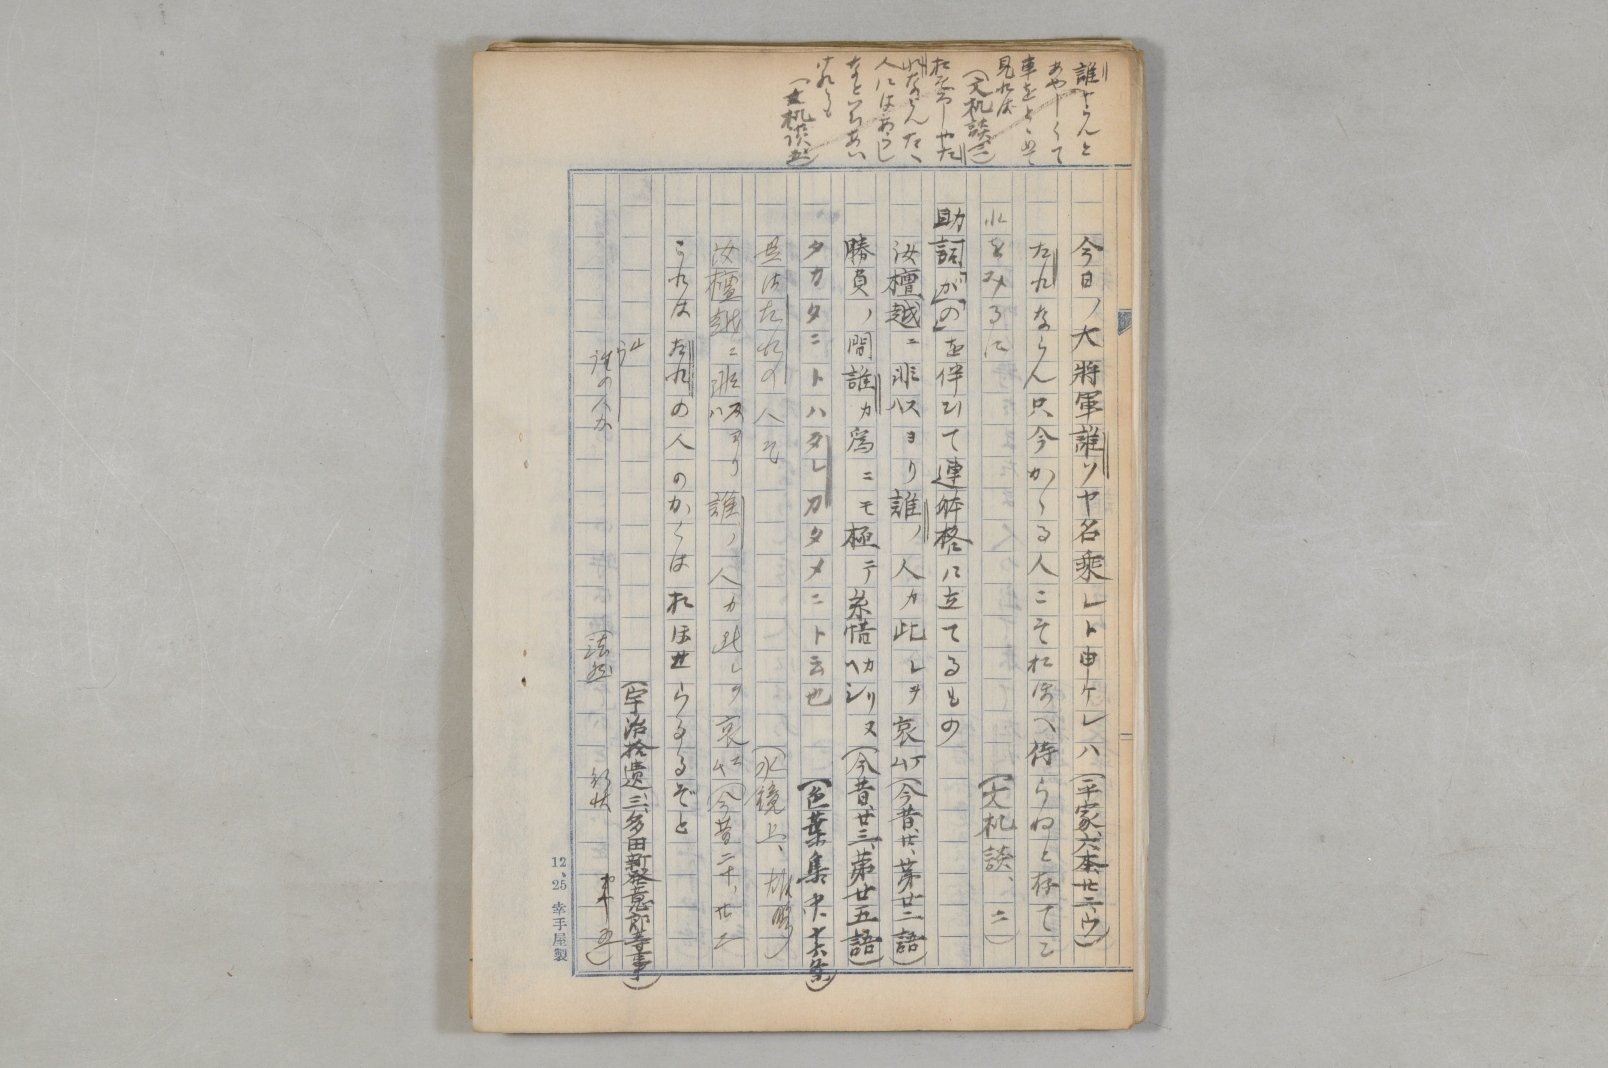 誰ならんと
あやしくて
車をとゝめて
見れは
(文机談二)
人にはあらし
(文机談五)
今日ノ大將軍誰ソヤ名乘レト申ケレハ(平家六本、廿二、ウ)
たれならん只今かゝる人こそおほへ侍らねと存てこ
れをみるに(文机談、二)
助詞「が」「の」を伴ひて連体格に立てるもの
汝檀越ニ非スヨリハ誰ノ人カ此レヲ哀マム(今昔、廿、第廿二語)
勝負ノ間誰カ爲ニモ極テ糸惜カリヌヘシ(今昔、廿三、第廿五語)
タカタニトハタレカタメニト云也(色葉集中、十六条)
是はたれの人そ(水鏡上、雄略)
汝檀越ニ非スヨリハ誰ノ人カ此レヲ哀マム(今昔二十、廿二
これはたれの人のかくはおほせらるるぞと
(宇治拾遺三、多田新發意郎等事)
誰の人か
12、25 幸手屋製